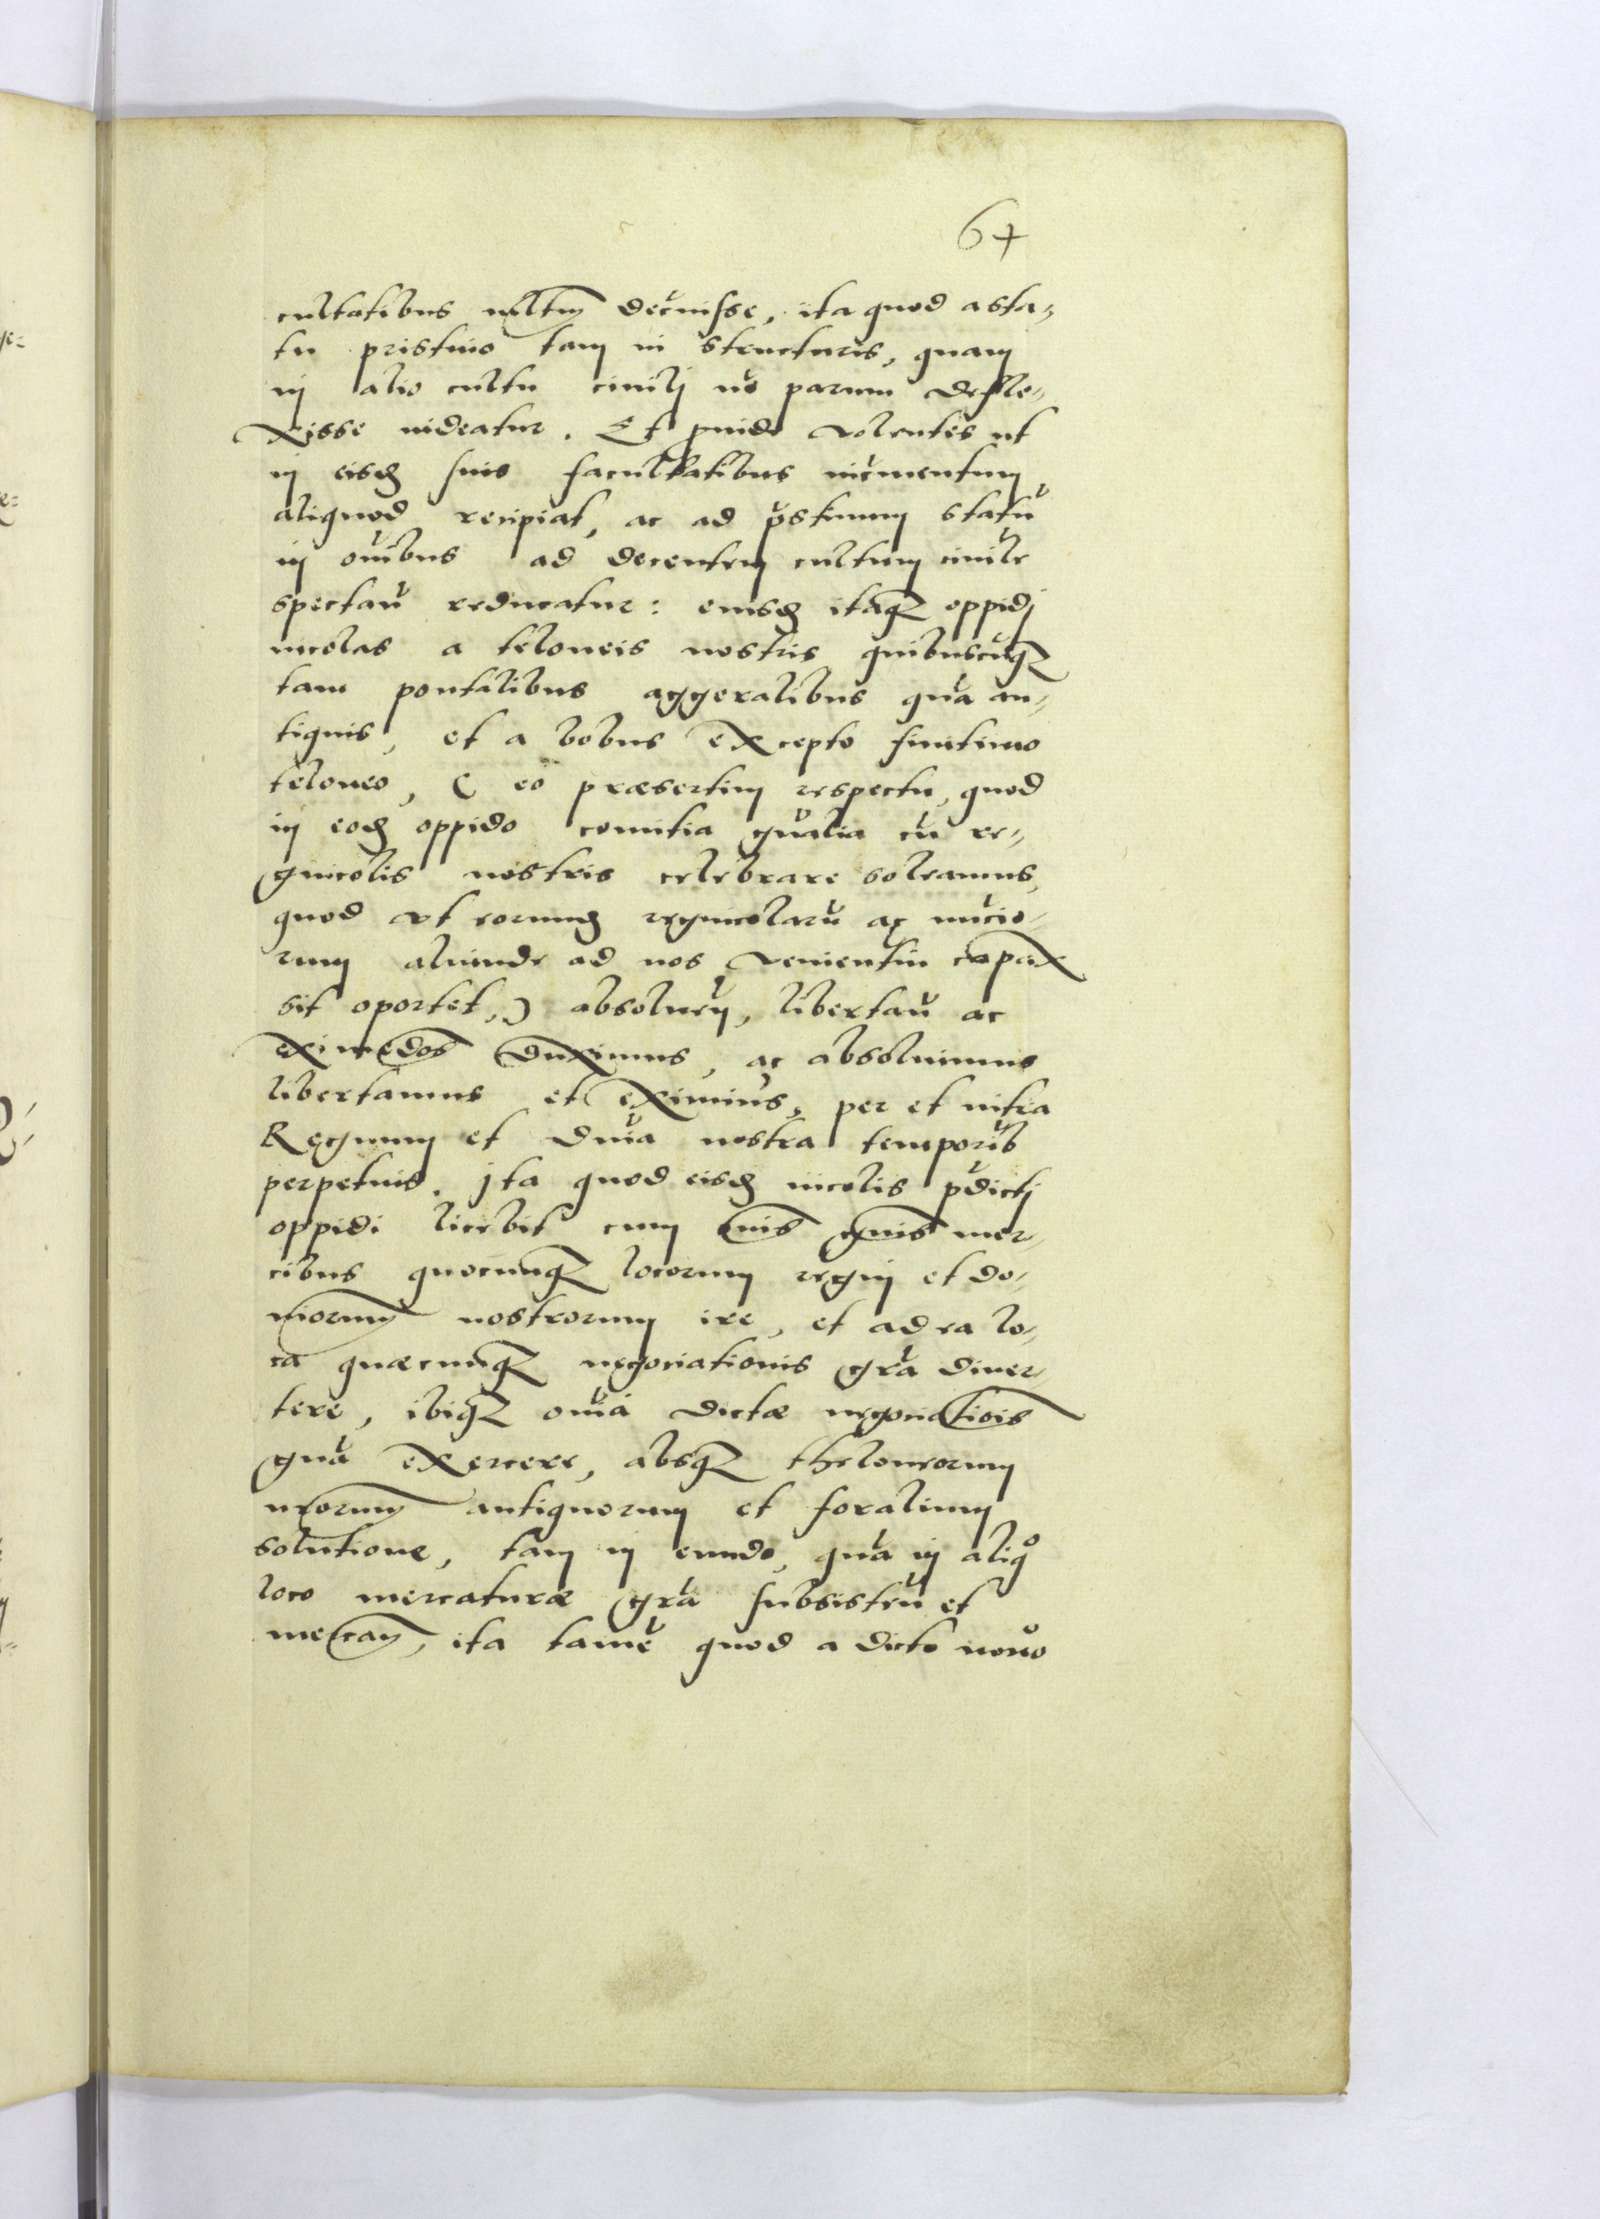 64
cultatibus multum decuisse, ita quod a sta-
tu pristino tam in structuris, quam
in alio cultu civili nō parum defle-
xisse uideatur. Et proinde volentes ut
in eisdē suis facultatibus incrementum
aliquod recipiat, ac ad pristinum statū
in oīnibus ad decentem cultum civile
spectan̄ reducatur: eiusdē itaq oppidi
incolas a teloneis nostris quibuscūq
tam pontalibus aggeralibus quā an-
tiquis, et a bobus excepto finitimo
teloneo, ( eo præsertim respectu, quod
in eodē oppido comitia gn̄alia cū re-
gnicolis nostris celebrare soleamus,
quod vt eorundē regnicolarū ac nūcio-
rum aliunde ad nos venientiū capax
sit oportet,) absoluen̄, libertan̄ ac
eximēdos duximus, ac absoluimus
libertamus et eximimus, per et infra
Regnum et dn̄ia nostra temporib
perpetuis. Ita quod eisdē incolis p̄dicti
oppidi licebit cum suis quibusuis mer-
cibus quocunq locorum regni et do-
miniorum nostrorum ire, et ad ea lo-
ca quæcunq negociationis grā diuer-
tere, ibiq oīnia dictæ negociatiōis
grā exercere, absq theloneorum
nrōrum antiquorum et foralium
solutione, tam in eundo, quā in aliqo
loco mercaturæ grā subsisten̄ et
mercan̄, ita tamē quod a dicto nouo